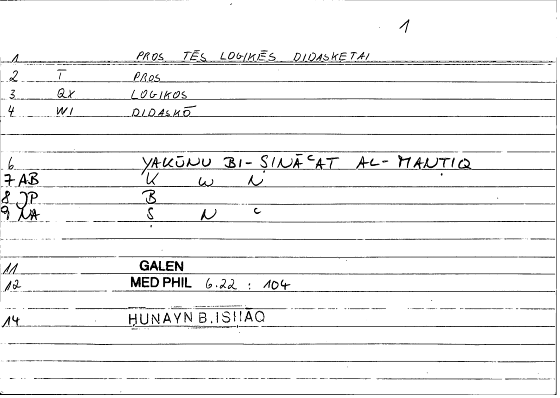 1
1 PROS TĒS LOGIKĒS DIDASKETAI
2 T PROS
3 QX LOGIKOS
4 WI DIDASKŌ
6 YAKŪNU BI-ṢINĀʿAT AL-MANṬIQ
7 AB K W N
8 JP B
9 NA Ṣ N ʿ
11 GALEN
12 MED PHIL 6.22 : 104
14 ḤUNAYN B. ISḤĀQ